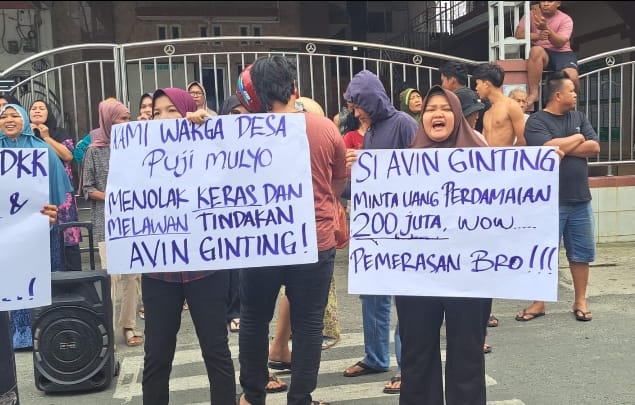 DKK
&
...!
KAMI WARGA DESA
PUJI MULYO
MENOLAK KERAS DAN
MELAWAN TINDAKAN
AVIN GINTING!
SI AVIN GINTING
MINTA UANG PERDAMAIAN
200 JUTA, WOW.....
PEMERASAN BRO!!!